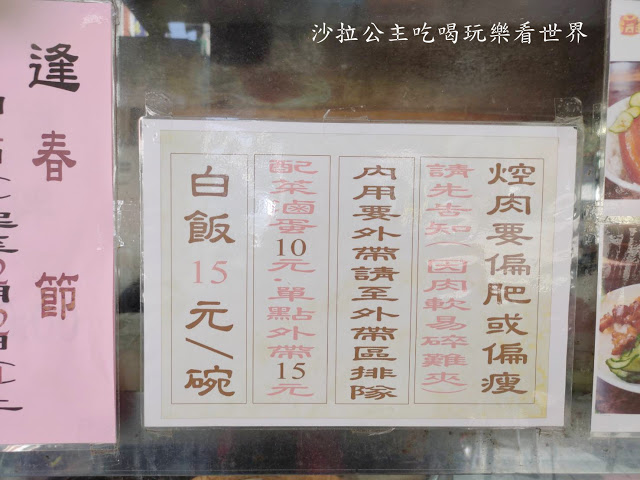 沙拉公主吃喝玩樂看世界
焢肉要偏肥或偏瘦
請先告知(因肉軟易碎難夾)
內用要外帶請至外帶區排隊
配菜鹵蛋10元·單點外帶15元
白飯15元/碗
逢春節